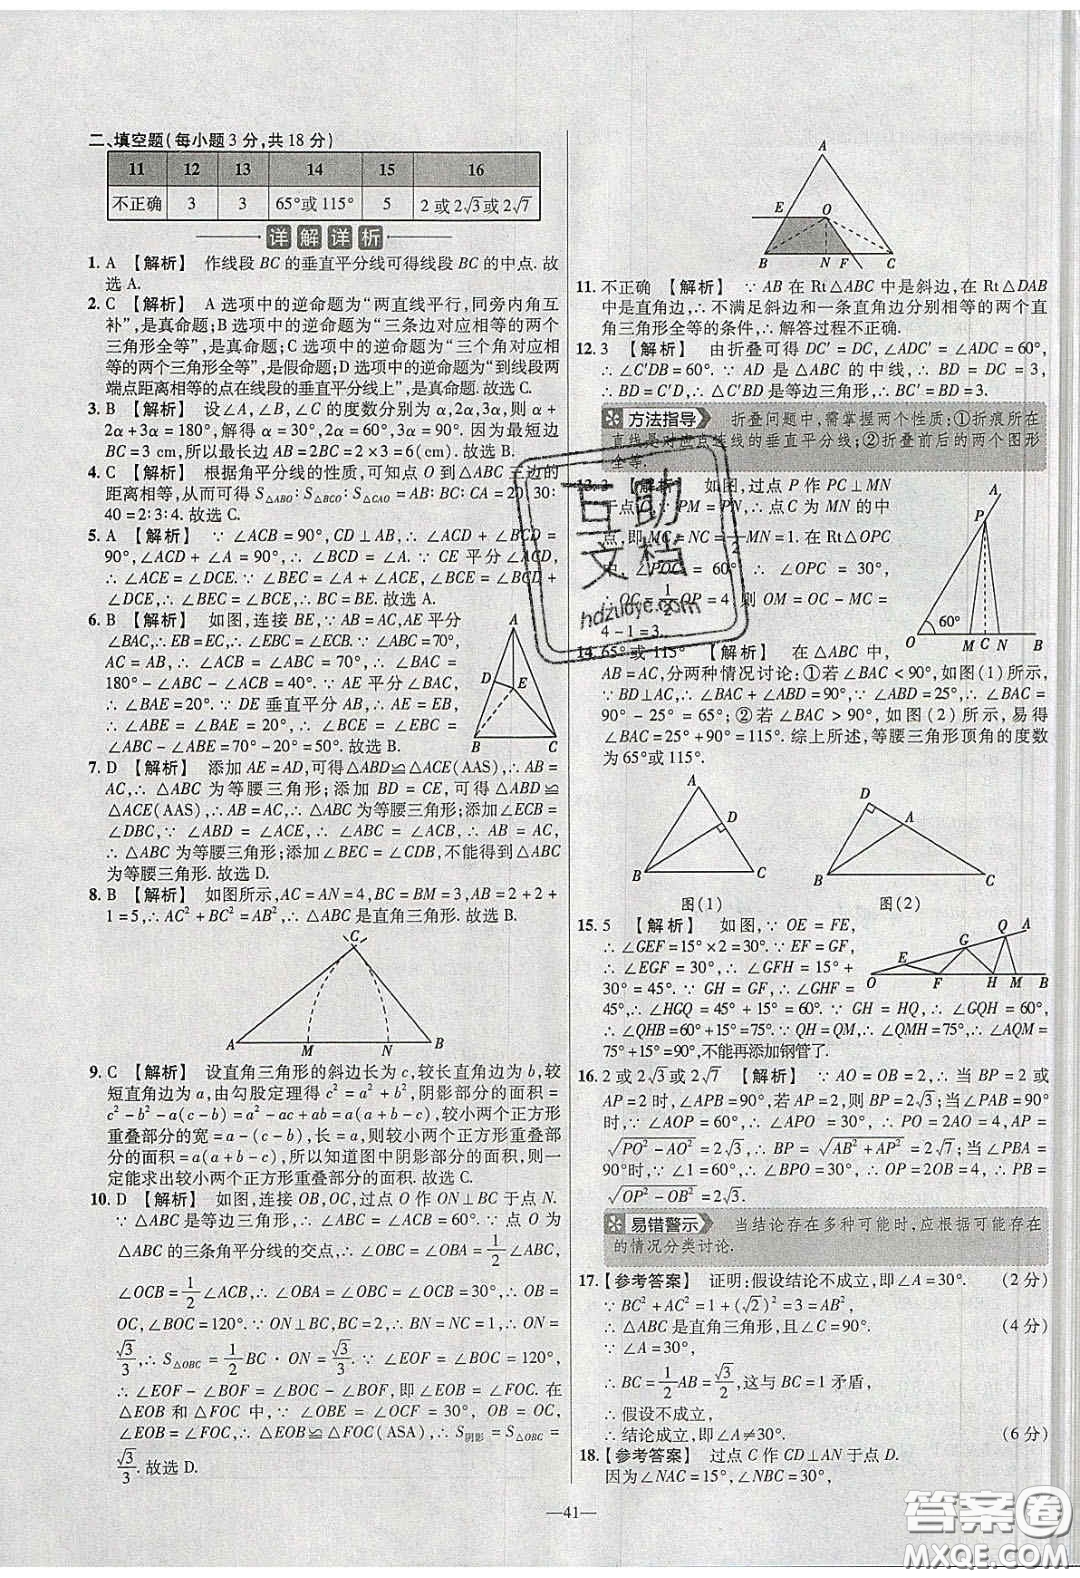 二、填空题(每小题3分,共18分)
11 12 13 14 15 16
不正确 3 3 65°或115° 5 2或2√3或2√7
详解详析
1. A 【解析】 作线段BC的垂直平分线可得线段BC的中点. 故
选A.
2. C 【解析】 A选项中的逆命题为“两直线平行,同旁内角互
补”,是真命题;B选项中的逆命题为“三条边对应相等的两个
三角形全等”,是真命题;C选项中的逆命题为“三个角对应相
等的两个三角形全等”,是假命题;D选项中的逆命题为“到线段两
端点距离相等的点在线段的垂直平分线上”,是真命题.故选C.
3. B 【解析】 设∠A,∠B,∠C的度数分别为α,2α,3α,则α+
2α+3α=180°,解得α=30°,2α=60°,3α=90°. 因为最短边
BC=3 cm,所以最长边AB=2BC=2×3=6(cm). 故选B.
4. C 【解析】 根据角平分线的性质,可知点O到△ABC三边的
距离相等,从而可得S△ABO∶S△BCO∶S△CAO=AB∶BC∶CA=20∶30∶
40=2∶3∶4. 故选C.
5. A 【解析】 ∵∠ACB=90°,CD⊥AB,∴∠ACD+∠BCD=
90°,∠ACD+∠A=90°,∴∠BCD=∠A. ∵CE平分∠ACD,
∴∠ACE=∠DCE. ∵∠BEC=∠A+∠ACE,∠BCE=∠BCD+
∠DCE,∴∠BEC=∠BCE,∴BC=BE. 故选A.
6. B 【解析】 如图,连接BE,∵AB=AC,AE平分
∠BAC,∴EB=EC,∴∠EBC=∠ECB. ∵∠ABC=70°,
AC=AB,∴∠ACB=∠ABC=70°,∴∠BAC=
180°-∠ABC-∠ACB=40°. ∵AE平分∠BAC,
∴∠BAE=20°. ∵DE垂直平分AB,∴AE=EB,
∴∠ABE=∠BAE=20°,∴∠BCE=∠EBC=
∠ABC-∠ABE=70°-20°=50°. 故选B.
A
D
E
B
C
7. D 【解析】 添加AE=AD,可得△ABD≌△ACE(AAS),∴AB=
AC,∴△ABC为等腰三角形;添加BD=CE,可得△ABD≌
△ACE(AAS),∴AB=AC,∴△ABC为等腰三角形;添加∠ECB=
∠DBC,∵∠ABD=∠ACE,∴∠ABC=∠ACB,∴AB=AC,
∴△ABC为等腰三角形;添加∠BEC=∠CDB,不能得到△ABC
为等腰三角形. 故选D.
8. B 【解析】 如图所示,AC=AN=4,BC=BM=3,AB=2+2+
1=5,∴AC²+BC²=AB²,∴△ABC是直角三角形. 故选B.
C
A
M
N
B
9. C 【解析】 设直角三角形的斜边长为c,较长直角边为b,较
短直角边为a,由勾股定理得c²=a²+b²,阴影部分的面积=
c²-b²-a(c-b)=a²-ac+ab=a(a+b-c),较小两个正方形
重叠部分的宽=a-(c-b),长=a,则较小两个正方形重叠部
分的面积=a(a+b-c),所以知道图中阴影部分的面积,则一
定能求出较小两个正方形重叠部分的面积. 故选C.
10. D 【解析】 如图,连接OB,OC,过点O作ON⊥BC于点N.
∵△ABC是等边三角形,∴∠ABC=∠ACB=60°. ∵点O为
△ABC的三条角平分线的交点,∴∠OBC=∠OBA=1/2∠ABC,
∠OCB=1/2∠ACB,∴∠OBA=∠OBC=∠OCB=30°,∴OB=
OC,∠BOC=120°. ∵ON⊥BC,BC=2,∴BN=NC=1,∴ON=
√3/3,∴S△OBC=1/2BC·ON=√3/3. ∵∠EOF=∠BOC=120°,
∴∠EOF-∠BOF=∠BOC-∠BOF,即∠EOB=∠FOC. 在
△EOB和△FOC中,∵∠OBE=∠OCF=30°,OB=OC,
∠EOB=∠FOC,∴△EOB≌△FOC(ASA),∴S阴影=S△OBC=
√3/3. 故选D.
A
E
O
B
N
F
C
11. 不正确 【解析】 ∵AB在Rt△ABC中是斜边,在Rt△DAB
中是直角边,∴不满足斜边和一条直角边分别相等的两个直
角三角形全等的条件,∴解答过程不正确.
12. 3 【解析】 由折叠可得DC'=DC,∠ADC'=∠ADC=60°,
∴∠C'DB=60°. ∵AD是△ABC的中线,∴BD=DC=3,
∴BD=C'D,∴△C'BD是等边三角形,∴BC'=BD=3.
方法指导 折叠问题中,需掌握两个性质:①折痕所在
直线是对应点连线的垂直平分线;②折叠前后的两个图形
全等.
13. 3 【解析】 如图,过点P作PC⊥MN
于点C,∵PM=PN,∴点C为MN的中
点,即MC=NC=1/2MN=1. 在Rt△OPC
中,∠POC=60°,∴∠OPC=30°,
∴OC=1/2OP=4,则OM=OC-MC=
4-1=3.
A
P
60°
O
M
C
N
B
14. 65°或115° 【解析】 在△ABC中,
AB=AC,分两种情况讨论:①若∠BAC<90°,如图(1)所示,
∵BD⊥AC,∴∠BAC+∠ABD=90°. ∵∠ABD=25°,∴∠BAC=
90°-25°=65°;②若∠BAC>90°,如图(2)所示,易得
∠BAC=25°+90°=115°. 综上所述,等腰三角形顶角的度数
为65°或115°.
A
D
B
C
图(1)
D
A
B
C
图(2)
15. 5 【解析】 如图,∵OE=FE,
∴∠GEF=15°×2=30°. ∵EF=GF,
∴∠EGF=30°,∴∠GFH=15°+
30°=45°. ∵GH=GF,∴∠GHF=
45°,∴∠HGQ=45°+15°=60°. ∵GH=HQ,∴∠GQH=60°,
∴∠QHB=60°+15°=75°. ∵QH=QM,∴∠QMH=75°,∴∠AQM=
75°+15°=90°,不能再添加钢管了.
O
E
F
G
H
Q
M
A
B
16. 2或2√3或2√7 【解析】 ∵AO=OB=2,∴当BP=2或
AP=2时,∠APB=90°,若AP=2,则BP=2√3;当∠PAB=90°
时,∵∠AOP=60°,∴∠APO=30°,∴PO=2AO=4,∴AP=
√(PO²-AO²)=2√3,∴BP=√(AB²+AP²)=2√7;当∠PBA=
90°时,∵∠1=60°,∴∠BPO=30°,∴PO=2OB=4,∴PB=
√(OP²-OB²)=2√3.
易错警示 当结论存在多种可能时,应根据可能存在
的情况分类讨论.
17. 【参考答案】 证明:假设结论不成立,即∠A=30°. (2分)
∵BC²+AC²=1+(√2)²=3=AB²,
∴△ABC是直角三角形,且∠C=90°. (4分)
∵∠A=30°,
∴BC=1/2AB=√3/2,这与BC=1矛盾,
∴假设不成立,
∴结论成立,即∠A≠30°. (6分)
18. 【参考答案】 过点C作CD⊥AN于点D.
因为∠NAC=15°,∠NBC=30°,
—41—
互助文档
hdzuoye.com
答案圈
MXQE.COM